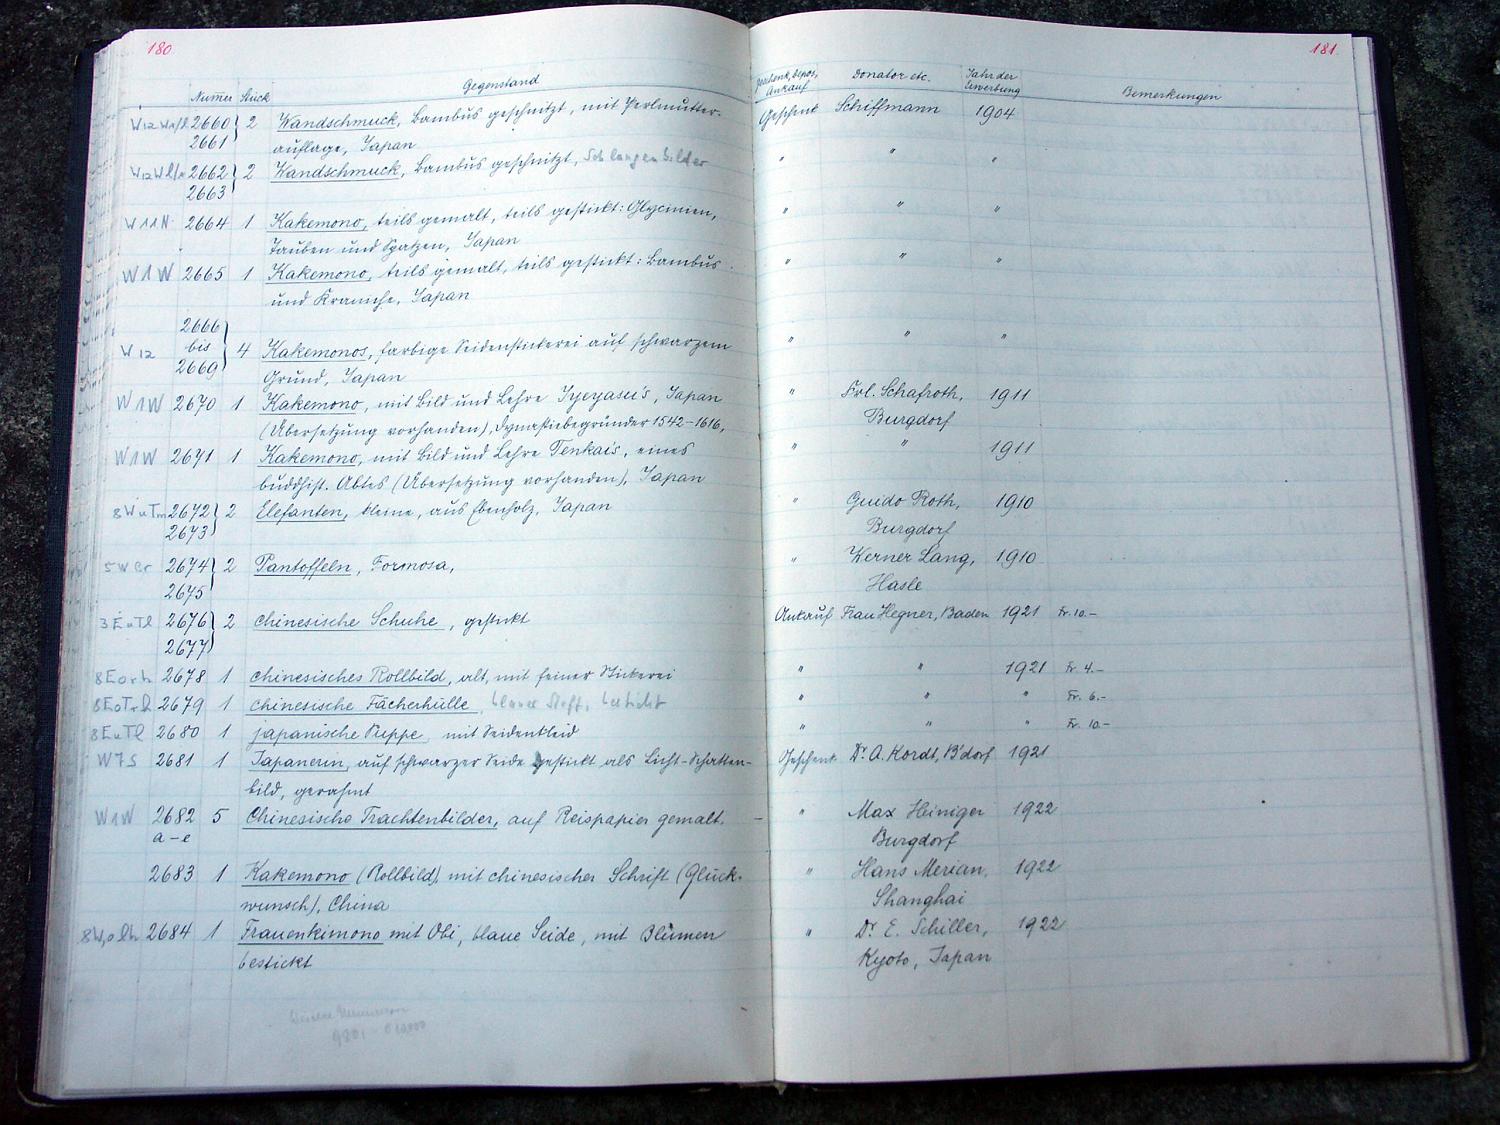 180
181
Nummer Stück Gegenstand Geschenk, depos, Ankauf Donator etc. Jahr der Erwerbung Bemerkungen
2660 2 Wandschmuck, Bambus geschnitzt, mit Perlmutter- Geschenk Schiffmann 1904
2661 auflage, Japan
2662 2 Wandschmuck, Bambus geschnitzt, Schlangenbilder " " "
2663
W11N 2664 1 Kakemono, teils gemalt, teils gestickt: Glycinien, " " "
Tauben und Spatzen, Japan
W1W 2665 1 Kakemono, teils gemalt, teils gestickt: Bambus " " "
und Kraniche, Japan
2666
W12 bis 4 Kakemonos, farbige Seidenstickerei auf schwarzem " " "
2669 Grund, Japan
W1W 2670 1 Kakemono, mit Bild und Lehre Iyeyasu's, Japan " Frl. Schafroth, 1911
(Übersetzung vorhanden), Dynastiebegründer 1542-1616, Burgdorf
W1W 2671 1 Kakemono, mit Bild und Lehre Tenkais, eines " " 1911
buddhist. Abtes (Übersetzung vorhanden), Japan
8WuTm 2672 2 Elefanten, kleine, aus Ebenholz, Japan " Guido Roth, 1910
2673 Burgdorf
5WCr 2674 2 Pantoffeln, Formosa, " Werner Lang, 1910
2675 Hasle
3EuTl 2676 2 chinesische Schuhe, gestickt Ankauf Frau Hegner, Baden 1921 Fr. 10.-
2677
8Eorh 2678 1 chinesisches Rollbild, alt, mit feiner Stickerei " " 1921 Fr. 4.-
8EoTrl 2679 1 chinesische Fächerhülle, blauer Stoff, bestickt " " " Fr. 6.-
8EuTl 2680 1 japanische Puppe, mit Seidenkleid " " " Fr. 10.-
W7S 2681 1 Japanerin, auf schwarzer Seide gestickt als Licht-Schatten- Geschenk Dr. A. Kordt, B'dorf 1921
bild, gerahmt
W1W 2682 5 Chinesische Trachtenbilder, auf Reispapier gemalt. - " Max Heiniger 1922
a-e Burgdorf
2683 1 Kakemono (Rollbild) mit chinesischer Schrift (Glück- " Hans Merian, 1922
wunsch), China Shanghai
2684 1 Frauenkimono mit Obi, blaue Seide, mit Blumen " Dr. E. Schiller, 1922
bestickt Kyoto, Japan